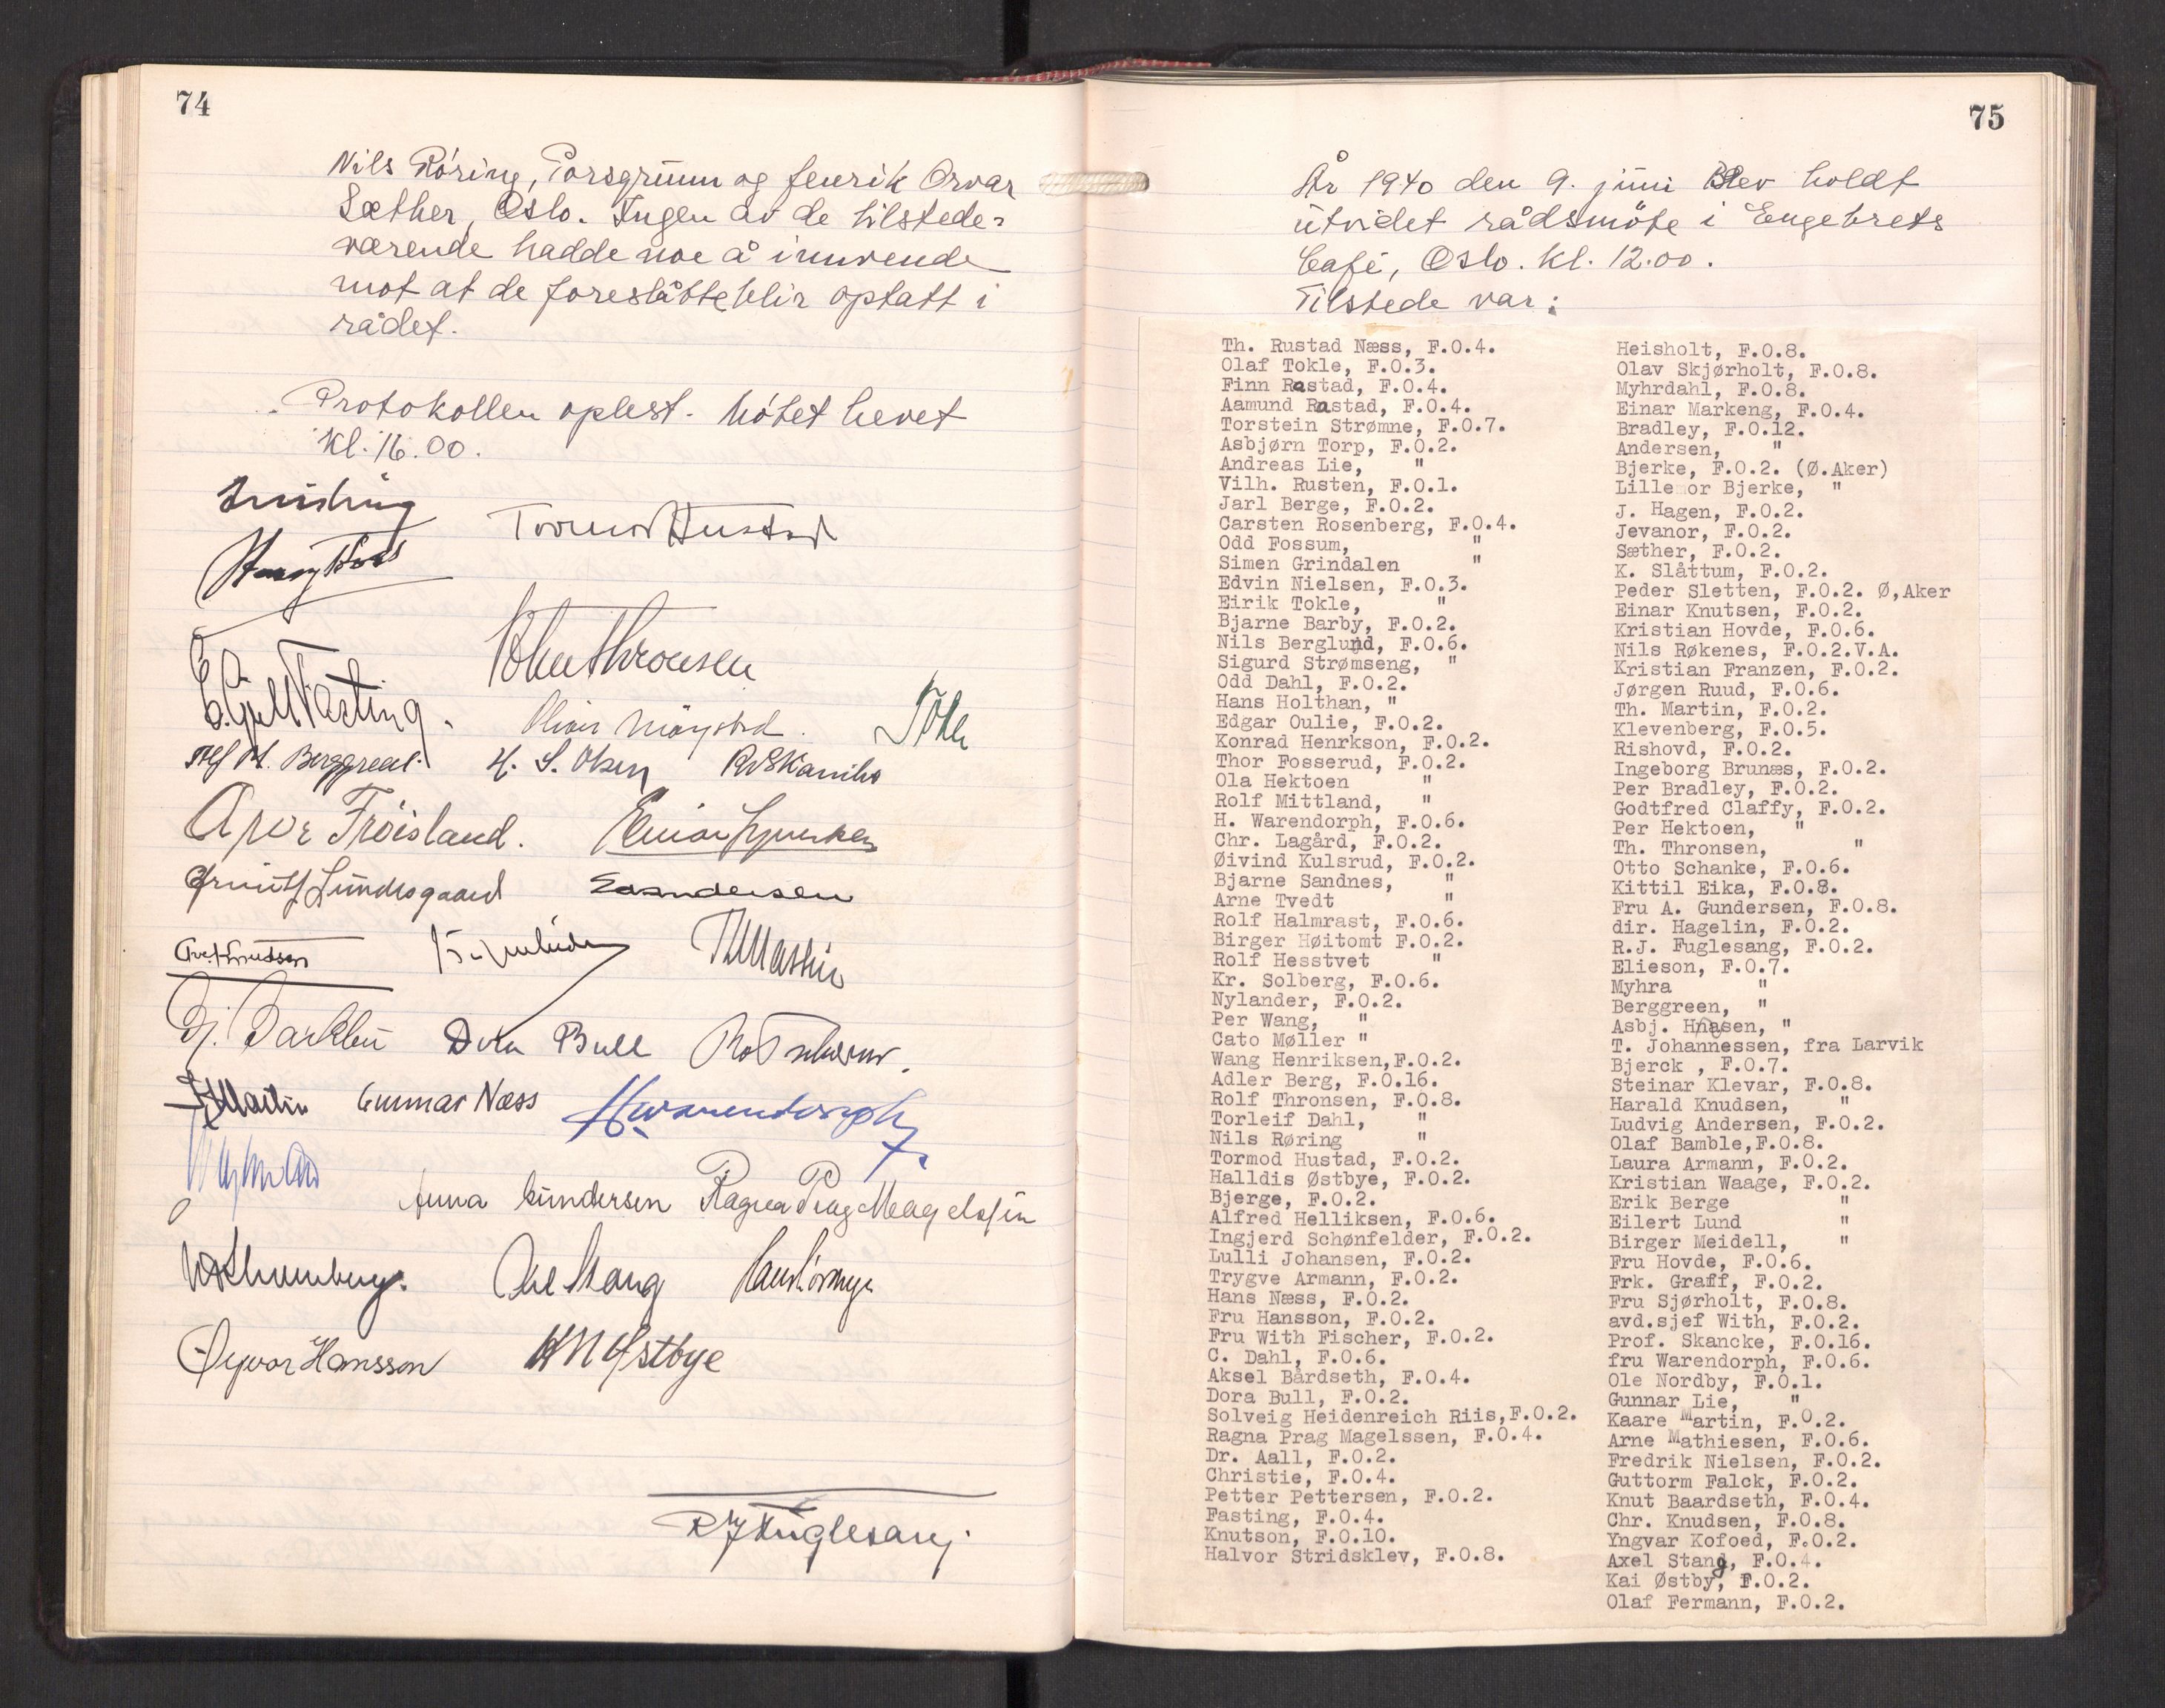 74
Nils Röring, Porsgrunn og fenrik Orvar
Sæther, Oslo. Ingen av de tilstede-
værende hadde noe å innvende
mot at de foreslåtte blir optatt i
rådet.
Protokollen oplest. Mötet hevet
kl. 16.00.
Tormod Hustad
John Thronsen
Fasting.
Oliver
Alf M. Berggreen
H. S. Olsen
R. Skancke
Arne Fröisland.
Einar
Lundesgaard
E Andersen
Th Martin
Dora Bull
Martin
Gunnar Næss
HWarendorph
Anna Gundersen
Ragna Prag Magelssen
Axel Stang
Yngvar Hansson
HNØstbye
RJFuglesang.
75
År 1940 den 9. juni Blev holdt
utvidet rådsmöte i Engebrets
Café, Oslo. kl. 12.00.
Tilstede var:
Th. Rustad Næss, F.O.4.
Olaf Tokle, F.O.3.
Finn Rastad, F.O.4.
Aamund Rastad, F.O.4.
Torstein Strømne, F.O.7.
Asbjørn Torp, F.O.2.
Andreas Lie, "
Vilh. Rusten, F.O.1.
Jarl Berge, F.O.2.
Carsten Rosenberg, F.O.4.
Odd Fossum, "
Simen Grindalen "
Edvin Nielsen, F.O.3.
Eirik Tokle, "
Bjarne Barby, F.O.2.
Nils Berglund, F.O.6.
Sigurd Strømseng, "
Odd Dahl, F.O.2.
Hans Holthan, "
Edgar Oulie, F.O.2.
Konrad Henrkson, F.O.2.
Thor Fosserud, F.O.2.
Ola Hektoen "
Rolf Mittland, "
H. Warendorph, F.O.6.
Chr. Lagård, F.O.2.
Øivind Kulsrud, F.O.2.
Bjarne Sandnes, "
Arne Tvedt "
Rolf Halmrast, F.O.6.
Birger Høitomt F.O.2.
Rolf Hesstvet "
Kr. Solberg, F.O.6.
Nylander, F.O.2.
Per Wang, "
Cato Møller "
Wang Henriksen,F.O.2.
Adler Berg, F.O.16.
Rolf Thronsen, F.O.8.
Torleif Dahl, "
Nils Røring "
Tormod Hustad, F.O.2.
Halldis Østbye, F.O.2.
Bjerge, F.O.2.
Alfred Helliksen, F.O.6.
Ingjerd Schønfelder, F.O.2.
Lulli Johansen, F.O.2.
Trygve Armann, F.O.2.
Hans Næss, F.O.2.
Fru Hansson, F.O.2.
Fru With Fischer, F.O.2.
C. Dahl, F.O.6.
Aksel Bårdseth, F.O.4.
Dora Bull, F.O.2.
Solveig Heidenreich Riis,F.O.2.
Ragna Prag Magelssen, F.O.4.
Dr. Aall, F.O.2.
Christie, F.O.4.
Petter Pettersen, F.O.2.
Fasting, F.O.4.
Knutson, F.O.10.
Halvor Stridsklev, F.O.8.
Heisholt, F.O.8.
Olav Skjørholt, F.O.8.
Myhrdahl, F.O.8.
Einar Markeng, F.O.4.
Bradley, F.O.12.
Andersen, "
Bjerke, F.O.2. (Ø.Aker)
Lillemor Bjerke, "
J. Hagen, F.O.2.
Jevanor, F.O.2.
Sæther, F.O.2.
K. Slåttum, F.O.2.
Peder Sletten, F.O.2. Ø,Aker
Einar Knutsen, F.O.2.
Kristian Hovde, F.O.6.
Nils Røkenes, F.O.2.V.A.
Kristian Franzen, F.O.2.
Jørgen Ruud, F.O.6.
Th. Martin, F.O.2.
Klevenberg, F.O.5.
Rishovd, F.O.2.
Ingeborg Brunæs, F.O.2.
Per Bradley, F.O.2.
Godtfred Claffy, F.O.2.
Per Hektoen, "
Th. Thronsen, "
Otto Schanke, F.O.6.
Kittil Eika, F.O.8.
Fru A. Gundersen, F.O.8.
dir. Hagelin, F.O.2.
R.J. Fuglesang, F.O.2.
Elieson, F.O.7.
Myhra "
Berggreen, "
Asbj. Hnasen, "
T. Johannessen, fra Larvik
Bjerck , F.O.7.
Steinar Klevar, F.O.8.
Harald Knudsen, "
Ludvig Andersen, F.O.2.
Olaf Bamble,F.O.8.
Laura Armann, F.O.2.
Kristian Waage, F.O.2.
Erik Berge "
Eilert Lund "
Birger Meidell, "
Fru Hovde, F.O.6.
Frk. Graff, F.O.2.
Fru Sjørholt, F.O.8.
avd.sjef With, F.O.2.
Prof. Skancke, F.O.16.
fru Warendorph, F.O.6.
Ole Nordby, F.O.1.
Gunnar Lie, "
Kaare Martin, F.O.2.
Arne Mathiesen, F.O.6.
Fredrik Nielsen, F.O.2.
Guttorm Falck, F.O.2.
Knut Baardseth, F.O.4.
Chr. Knudsen, F.O.8.
Yngvar Kofoed, F.O.2.
Axel Stang, F.O.4.
Kai Østby, F.O.2.
Olaf Fermann, F.O.2.